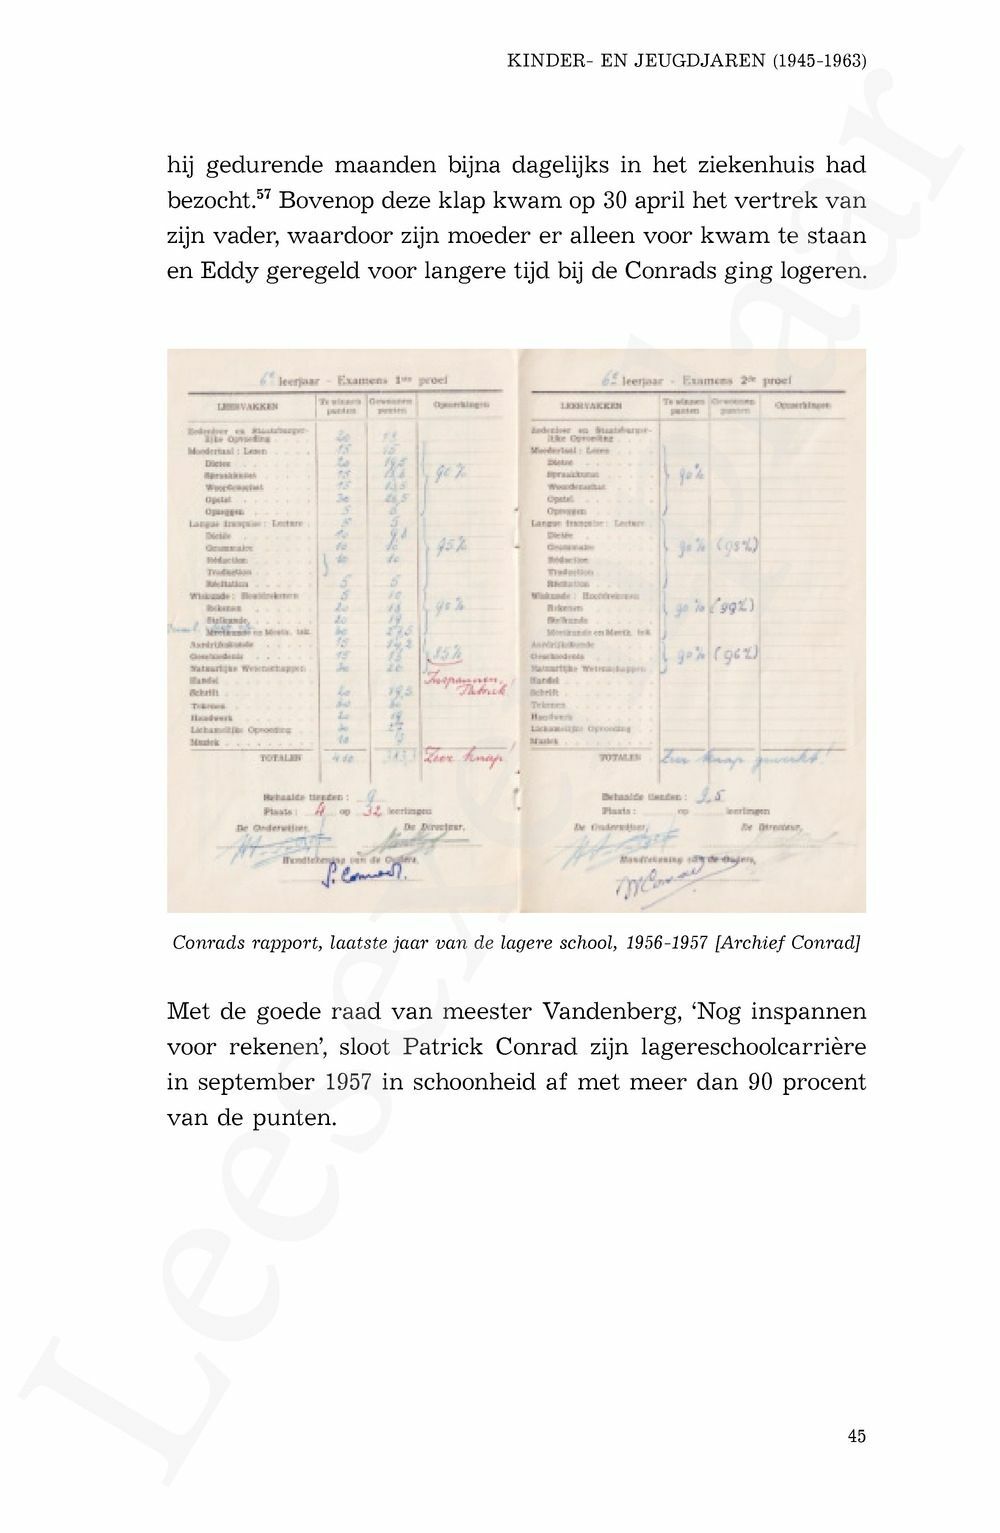 KINDER- EN JEUGDJAREN (1945-1963)
hij gedurende maanden bijna dagelijks in het ziekenhuis had
bezocht.57 Bovenop deze klap kwam op 30 april het vertrek van
zijn vader, waardoor zijn moeder er alleen voor kwam te staan
en Eddy geregeld voor langere tijd bij de Conrads ging logeren.
6e leerjaar - Examens 1ste proef
LEERVAKKEN Te winnen punten Gewonnen punten Opmerkingen
Zedenleer en Staatsburger-
lijke Opvoeding 20
Moedertaal : Lezen 15 15
Dictee 20 19,5
Spraakkunst 15
Woordenschat 15 13,5
Opstel 30
Opzeggen 5 5
90 %
Langue française : Lecture 5 5
Dictée 10
Grammaire 10 10
Rédaction 10 10
Traduction
Récitation 5 5
95 %
Wiskunde : Hoofdrekenen
Rekenen 20
Stelkunde 20 19
Meetkunde en Meetk. tek. 27,5
90 %
Aardrijkskunde 15 14,2
Geschiedenis 15
Natuurlijke Wetenschappen 20
85 %
Handel
Inspannen, Patrick!
Schrift 19,5
Tekenen
Handwerk 19
Lichamelijke Opvoeding 27
Muziek 10
TOTALEN 410 Zeer knap!
Behaalde tienden : 9
Plaats : 4 op 32 leerlingen
De Onderwijzer, De Directeur,
Handtekening van de Ouders,
P. Conrad.
6e leerjaar - Examens 2de proef
LEERVAKKEN Te winnen punten Gewonnen punten Opmerkingen
Zedenleer en Staatsburger-
lijke Opvoeding
Moedertaal : Lezen
Dictee
Spraakkunst
Woordenschat
Opstel
Opzeggen
90 %
Langue française : Lecture
Dictée
Grammaire
Rédaction
Traduction
Récitation
90 % (98 %)
Wiskunde : Hoofdrekenen
Rekenen
Stelkunde
Meetkunde en Meetk. tek.
90 % (99 %)
Aardrijkskunde
Geschiedenis
Natuurlijke Wetenschappen
90 % (96 %)
Handel
Schrift
Tekenen
Handwerk
Lichamelijke Opvoeding
Muziek
TOTALEN Zeer knap gewerkt!
Behaalde tienden : 9,5
Plaats : op leerlingen
De Onderwijzer, De Directeur,
Handtekening van de Ouders,
Conrad
Conrads rapport, laatste jaar van de lagere school, 1956-1957 [Archief Conrad]
Met de goede raad van meester Vandenberg, ‘Nog inspannen
voor rekenen’, sloot Patrick Conrad zijn lagereschoolcarrière
in september 1957 in schoonheid af met meer dan 90 procent
van de punten.
45
Leesexemplaar